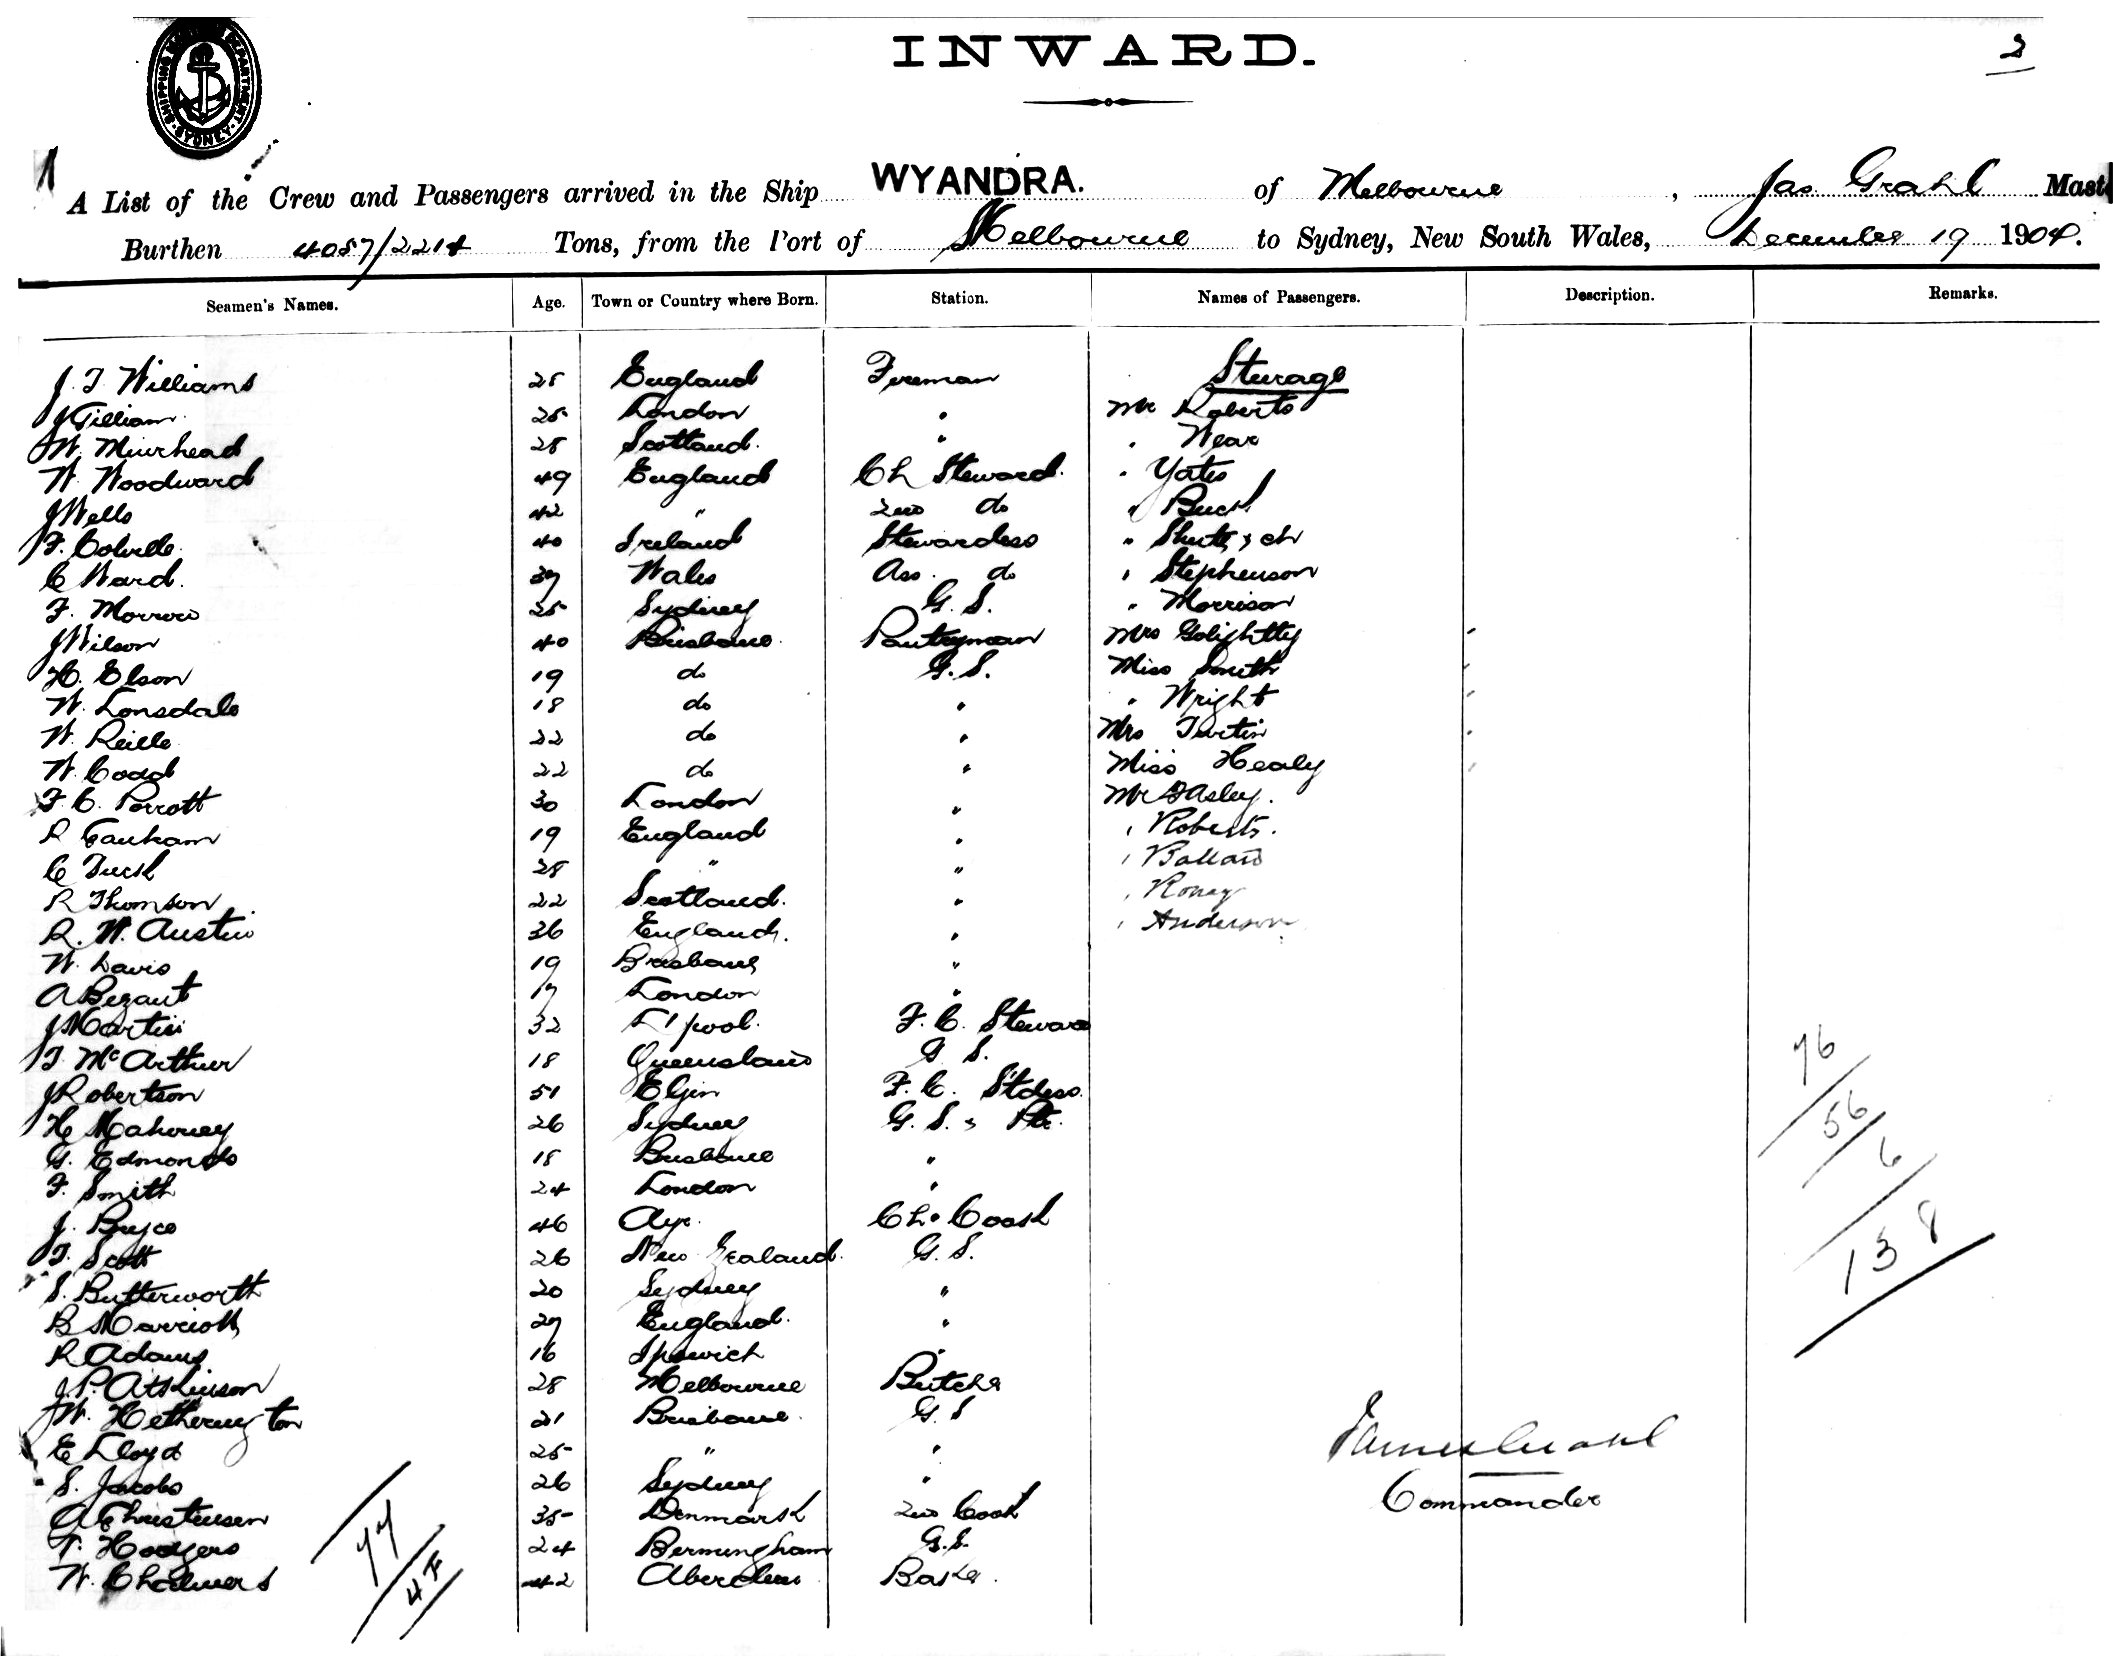 SHIPPING MASTER'S DEPARTMENT SYDNEY
INWARD.
A List of the Crew and Passengers arrived in the Ship WYANDRA. of Melbourne, Jas Grahl Mast
Burthen 4057/2214 Tons, from the Port of Melbourne to Sydney, New South Wales, December 19 1904.
Seamen's Names. Age. Town or Country where Born. Station. Names of Passengers. Description. Remarks.
Sturage
J. T Williams 28 England Fireman
J Gilliam 25 London " Mr Roberts
W. Muirhead 28 Scotland. " " Wear
W. Woodward 49 England Ch Steward. " Yates
J Wells 42 " 2nd do " Buck
F. Colville 40 Ireland Stewardess " Shutt & ch
C Ward. 37 Wales Ass. do " Stephenson
F. Morrow 25 Sydney G. S. " Morrison
J Wilson 40 Brisbane Pantryman Mrs Golightly
H. Elson 19 do G. S. Miss Smith
W. Lonsdale 18 do " " Wright
W. Reille 22 do " Mrs
W. Codd 22 do " Miss Healy
F. C. Porrott 30 London " Mr
R Farnham 19 England " " Roberts.
C Tuck 28 " " "
R Thomson 22 Scotland. " " Roney
R. W. Austin 36 England. " " Anderson
W. Davis 19 Brisbane "
A Bezant 17 London "
J Martin 32 L'pool. F. C. Steward
T. McArthur 18 Queensland G S.
J Robertson 51 Elgin F. C. St'dess.
H Mahoney 26 Sydney G. S. & Ptr.
G. Edmonds 18 Brisbane "
F. Smith 24 London "
J. Bryce 46 Ayr. Ch. Cook
T. Scott 26 New Zealand. G. S.
S. Butterworth 20 Sydney "
B Marriott 27 England. "
R Adams 16 Ipswich "
J. P. Atkinson 28 Melbourne Butcher
W. Hetherington 21 Brisbane. G. S
E Lloyd 25 " "
S. Jacobs 26 Sydney "
A Christensen 35 Denmark 2nd Cook
T. Hodgers 24 Bermingham G. S.
W. Chalmers 42 Aberdeen Baker.
76
56
6
138
James Grahl
Commander
77
4 F